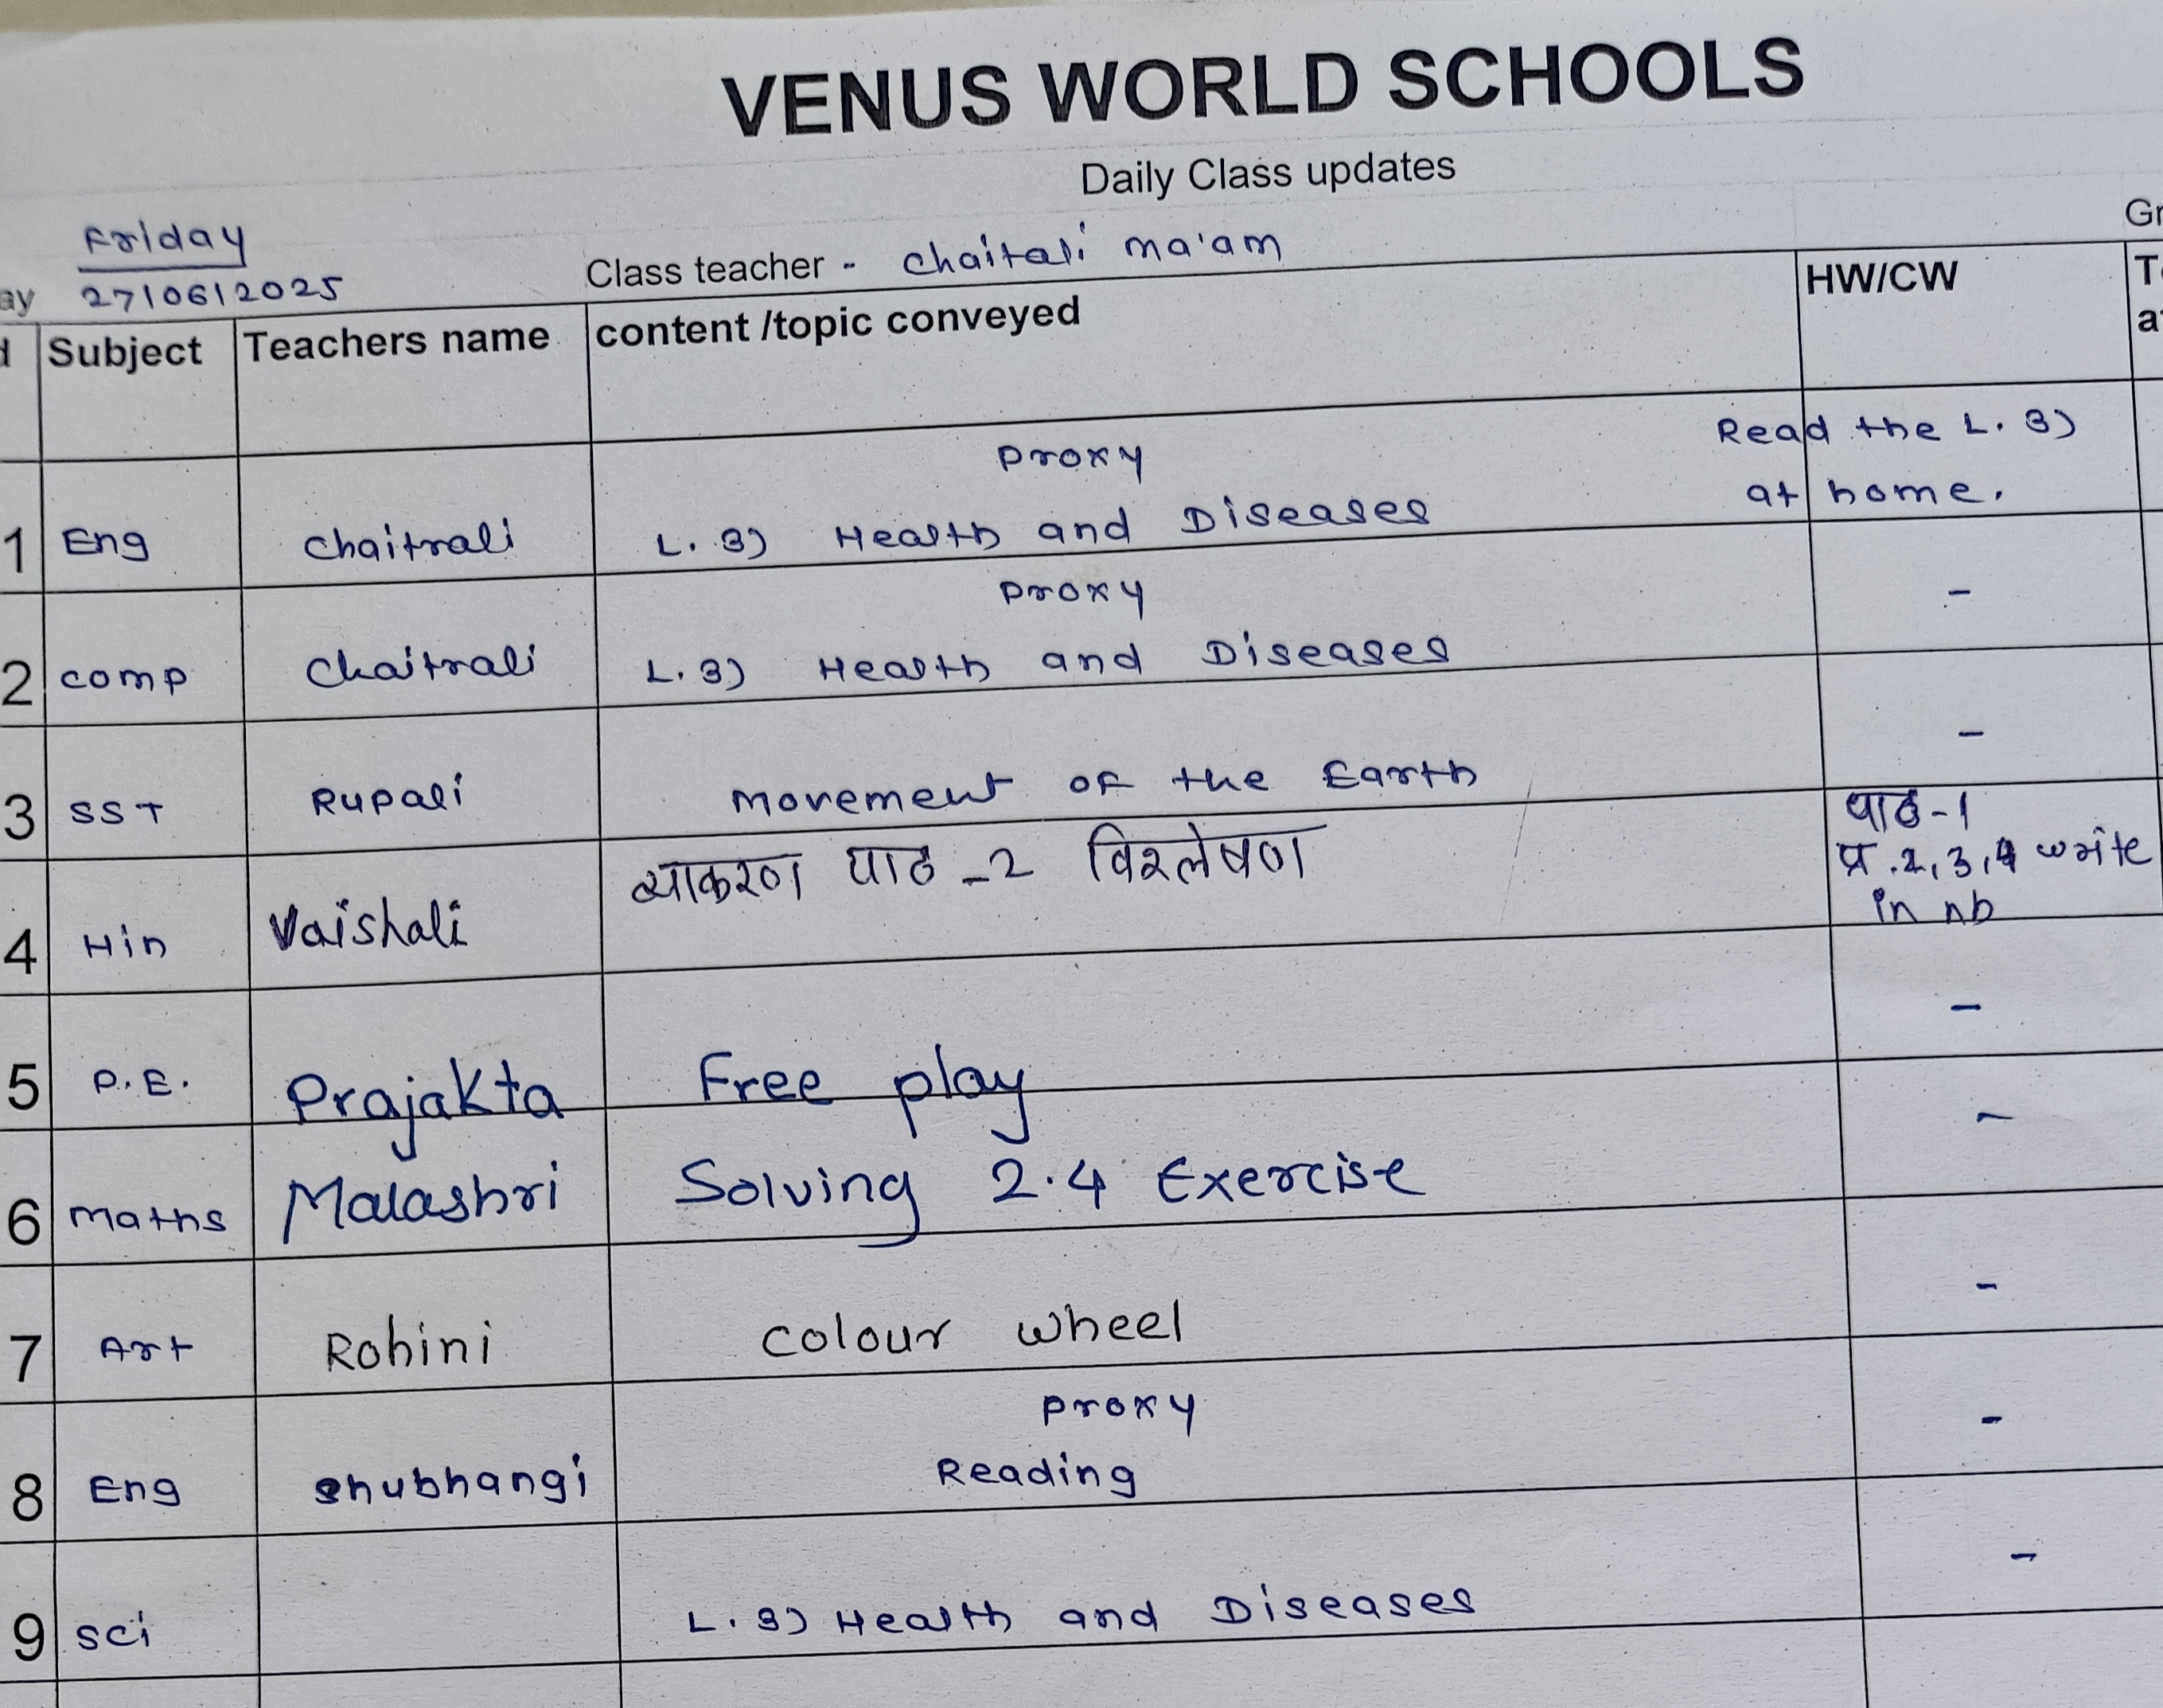 VENUS WORLD SCHOOLS
Daily Class updates
Friday
27/06/2025 Class teacher - Chaitali ma'am
Subject Teachers name content /topic conveyed HW/CW
Proxy Read the L. 3)
1 Eng Chaitrali L. 3) Health and Diseases at home.
Proxy
2 comp Chaitrali L. 3) Health and Diseases -
3 SST Rupali Movement of the Earth -
4 Hin Vaishali व्याकरण पाठ -2 विश्लेषण पाठ-1
प्र.2,3,4 write
in nb
5 P.E. Prajakta Free play -
6 Maths Malashri Solving 2.4 Exercise -
7 Art Rohini Colour wheel -
Proxy
8 Eng Shubhangi Reading -
9 Sci L. 3) Health and Diseases -